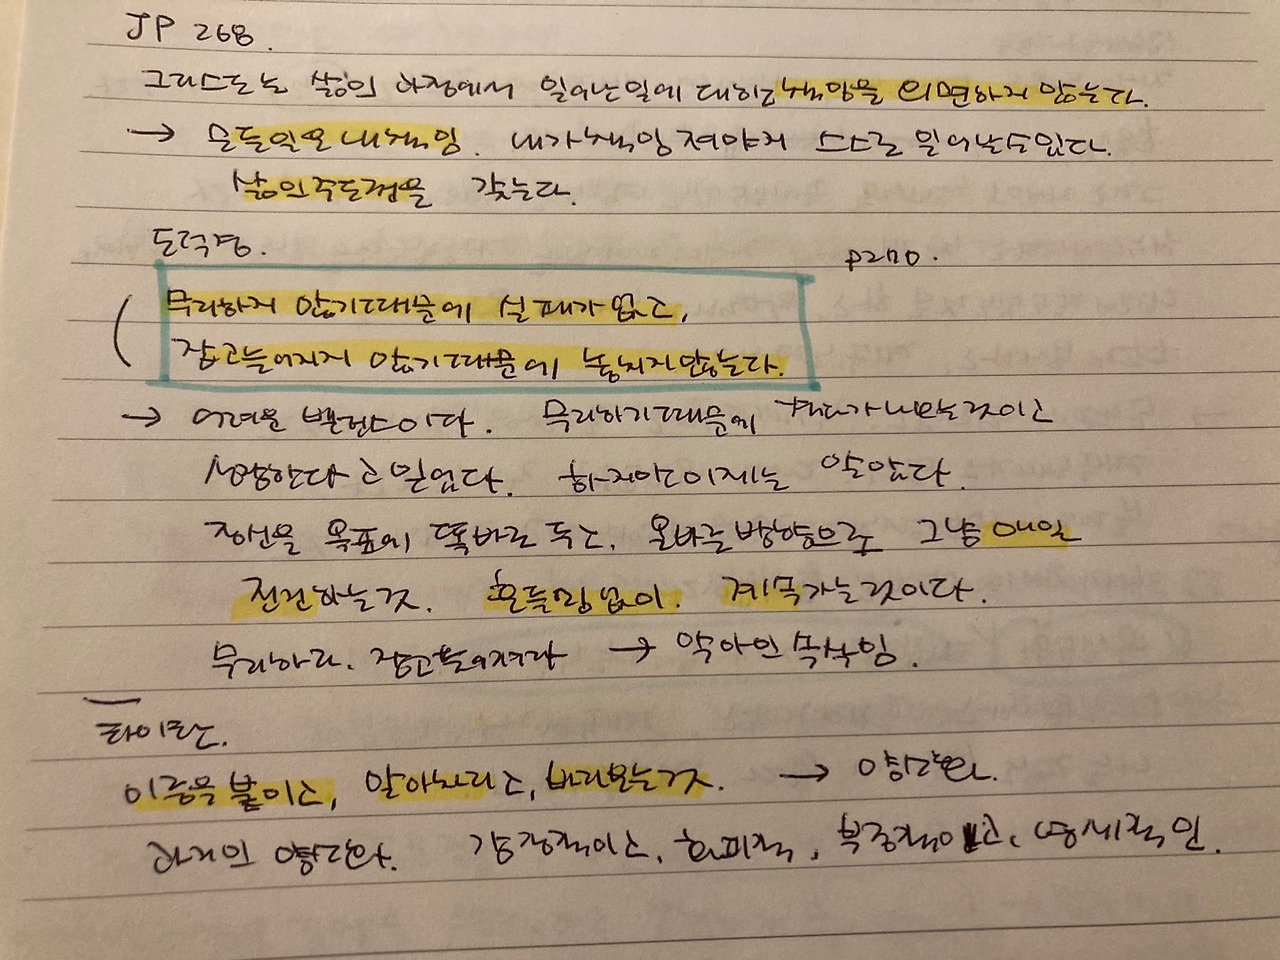 JP 268.
그리스도는 삶의 하정에서 일어난일에 대하고 책망을 외면하지 않는다.
→ 모든일은 내책임. 내가책임져야지 스스로 일어날수있다.
삶의주도권을 갖는다.
도덕경. p270.
무리하지 않기때문에 실패가없고,
잡고늘어지지 않기때문에 놓치지않는다.
→ 어려운 밸런스이다. 무리하기때문에 나오는것이고
성장한다고 믿었다. 하지만이제는 알았다
시선을 목표에 똑바로 두고, 올바른방향으로 그냥 매일
전진하는것. 흔들림없이. 계속가는것이다.
무리하라. 잡고늘어져라 → 악마의 속삭임.
라이란.
이름을 붙이고, 알아차리고, 바라보는것. → 양
의 감정적이고, 회피적, 부정적이고,